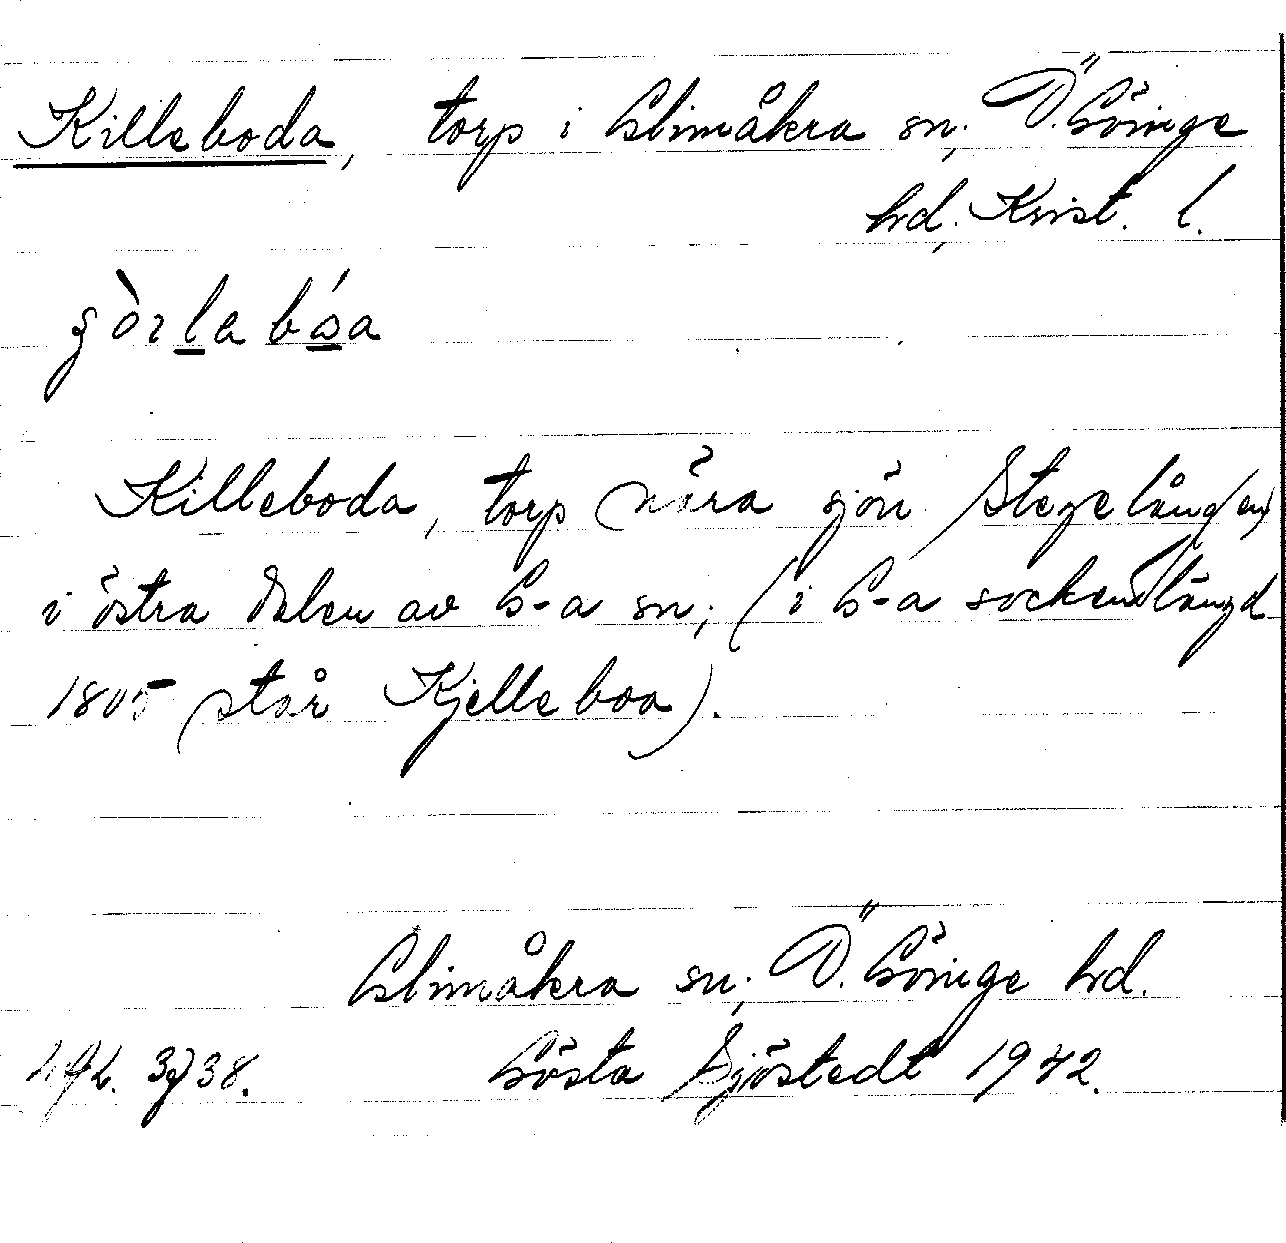 Killeboda, torp i Glimåkra sn, Ö. Göinge
hd, Krist. l.
Killeboda, torp nära sjön Stegelång(en)
i östra delen av G-a sn; (i G-a sockenlängd
1805 står Kjelleboa).
Glimåkra sn, Ö. Göinge hd.
3738. Gösta Sjöstedt 1942.